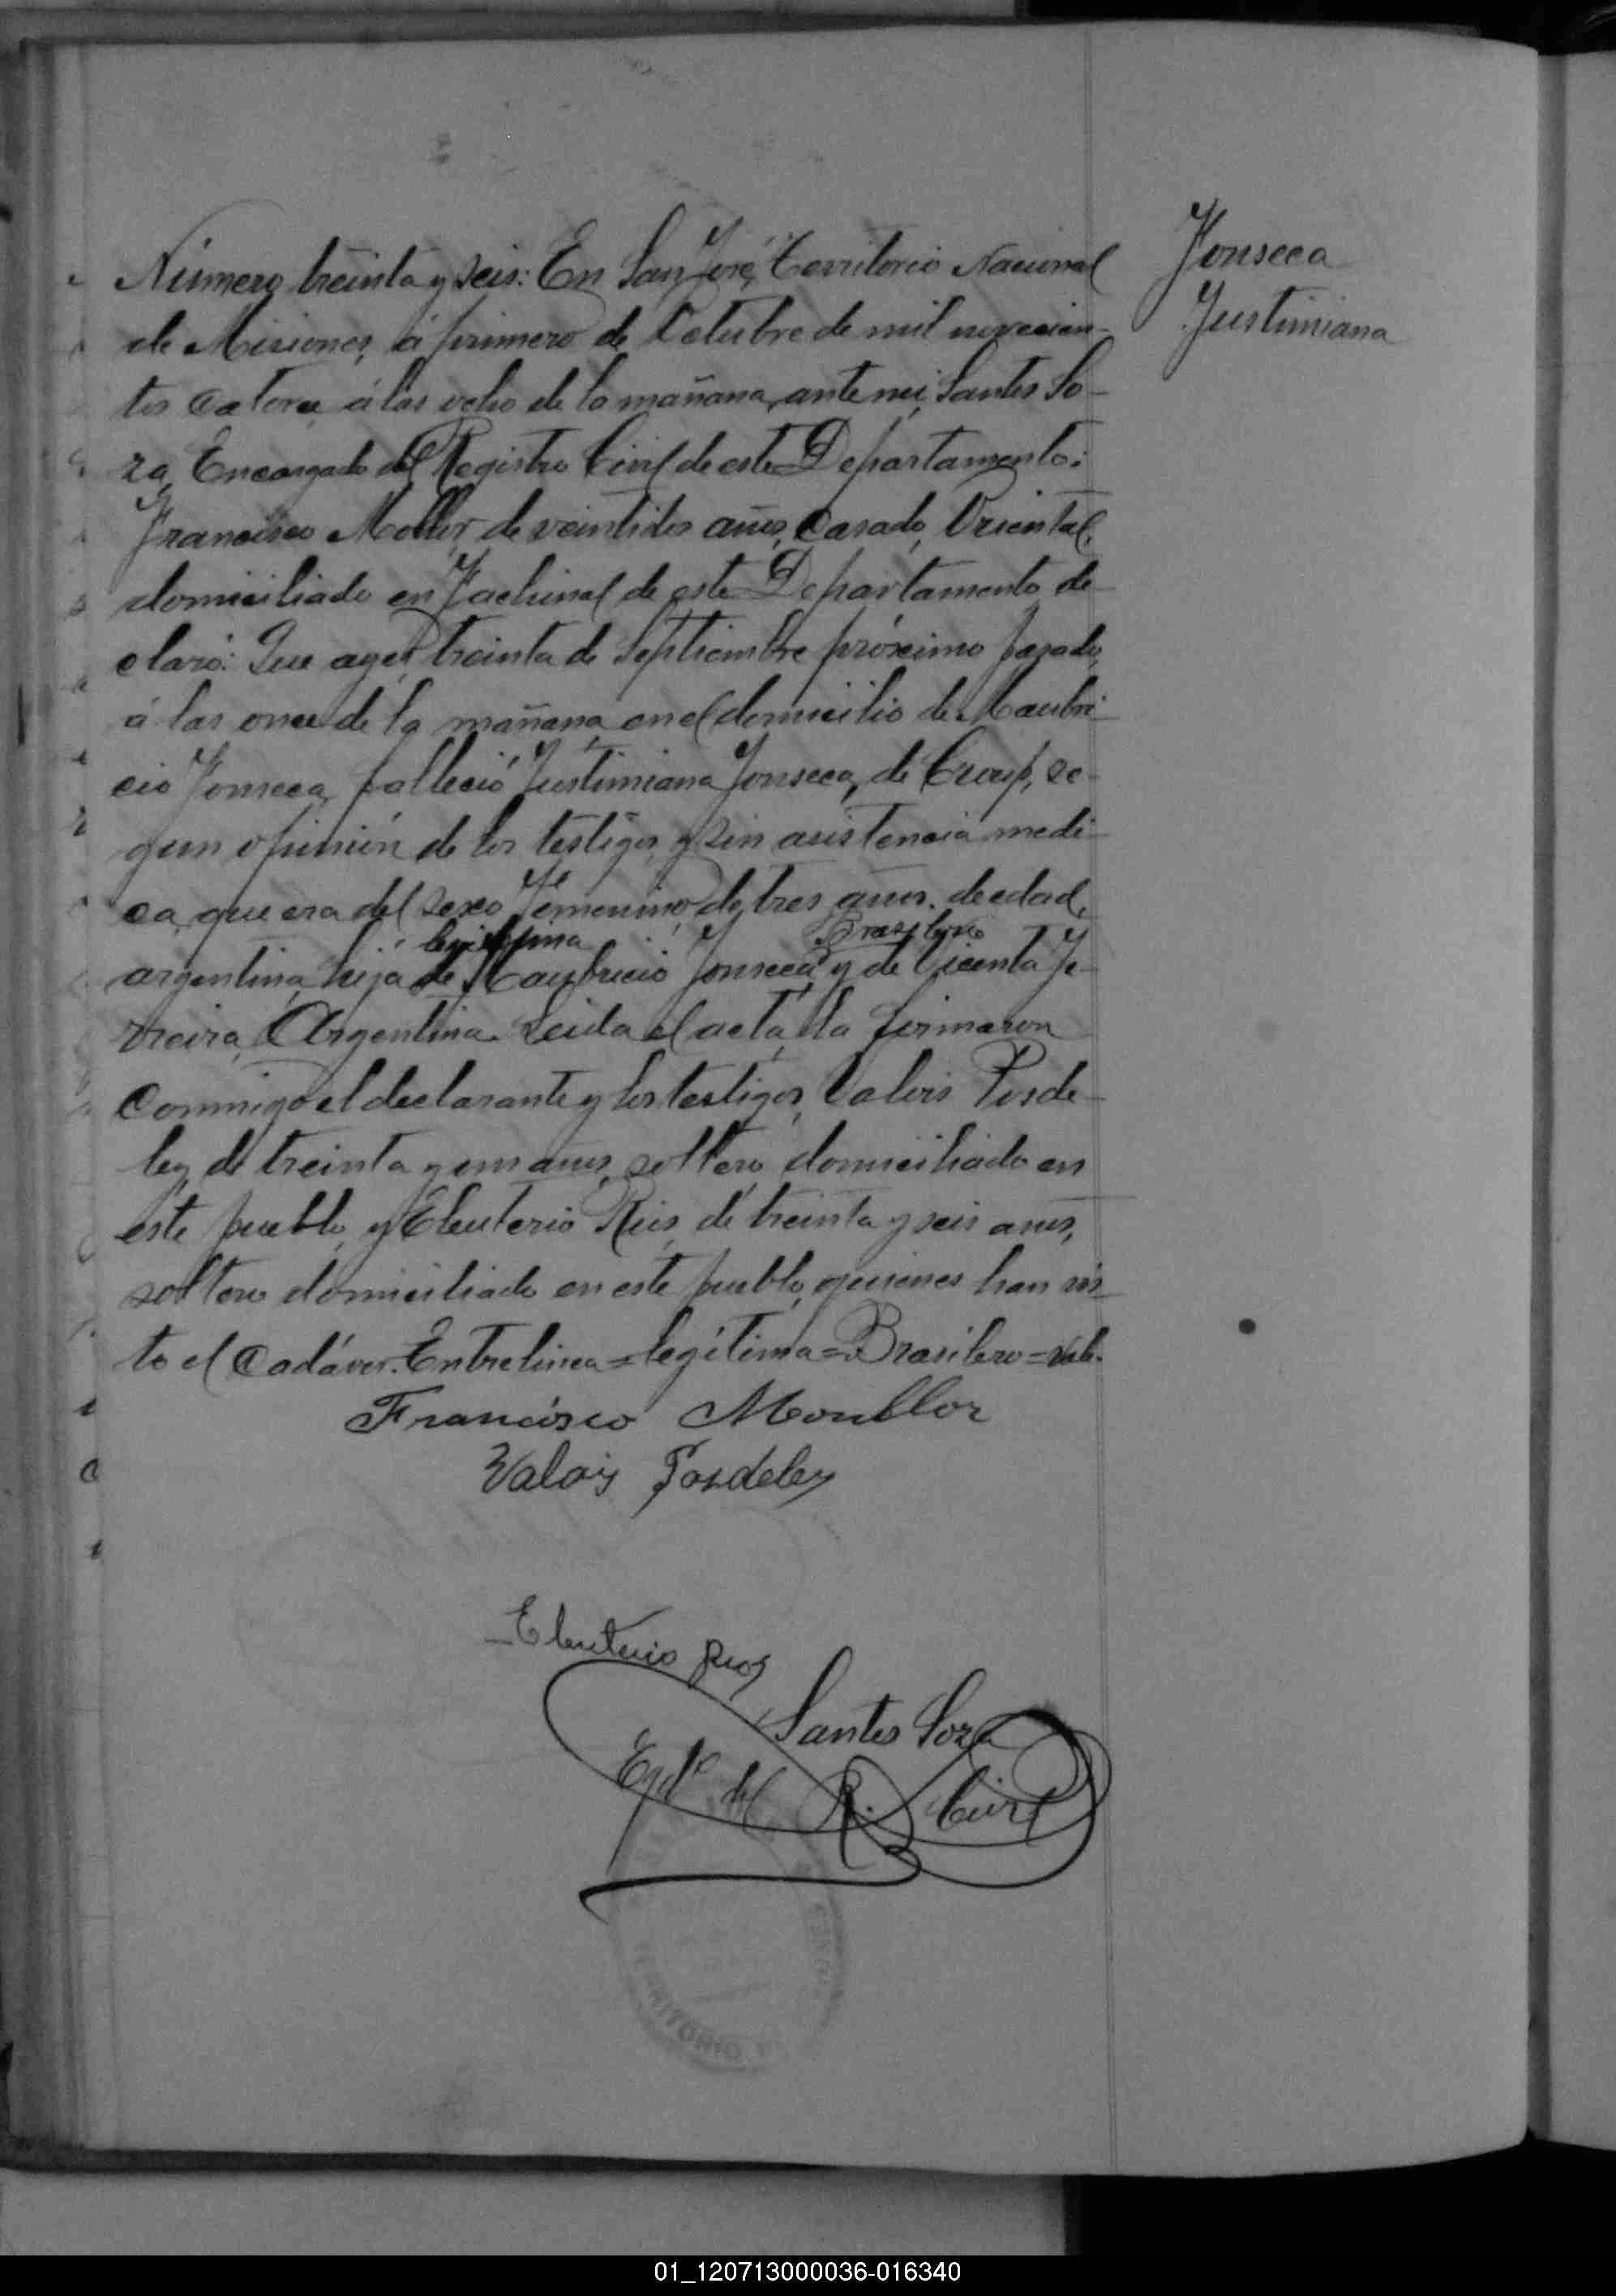 Fonseca
Justimiana
Número treinta y seis: En San José, Territorio Nacional
de Misiones, á primero de Octubre de mil novecien-
tos catorce, á las ocho de la mañana, ante mi, Santos So-
za, Encargado del Registro Civil de este Departamento:
Francisco Mollor, de veintidos años, Casado, Oriental,
domiciliado en Fachinal de este Departamento, de-
claró: Que ayer, treinta de Septiembre próximo pasado,
á las once de la mañana, en el domicilio de Maubri-
cio Fonseca, falleció Justimiana Fonseca, de Croup, se-
gun opinión de los testigos, y sin asistencia medi-
ca, que era del sexo Femenino, de tres años de edad,
legítima Brasilero
argentina, hija de Maubricio Fonseca, y de Vicenta Fe-
rreira, Argentina. Leida el acta, la firmaron
conmigo el declarante y los testigos, Valois Posde-
ley, de treinta y un años, soltero, domiciliado en
este pueblo, y Eleuterio Rios, de treinta y seis anos,
soltero domiciliado en este pueblo, quienes han vis-
to el Cadáver. Entrelinea = legítima = Brasilero = Vale.
Francisco Monllor
Valois Posdeley
Eleuterio Rios
Santos Soza
Egdo del R. Civil
01_120713000036-016340